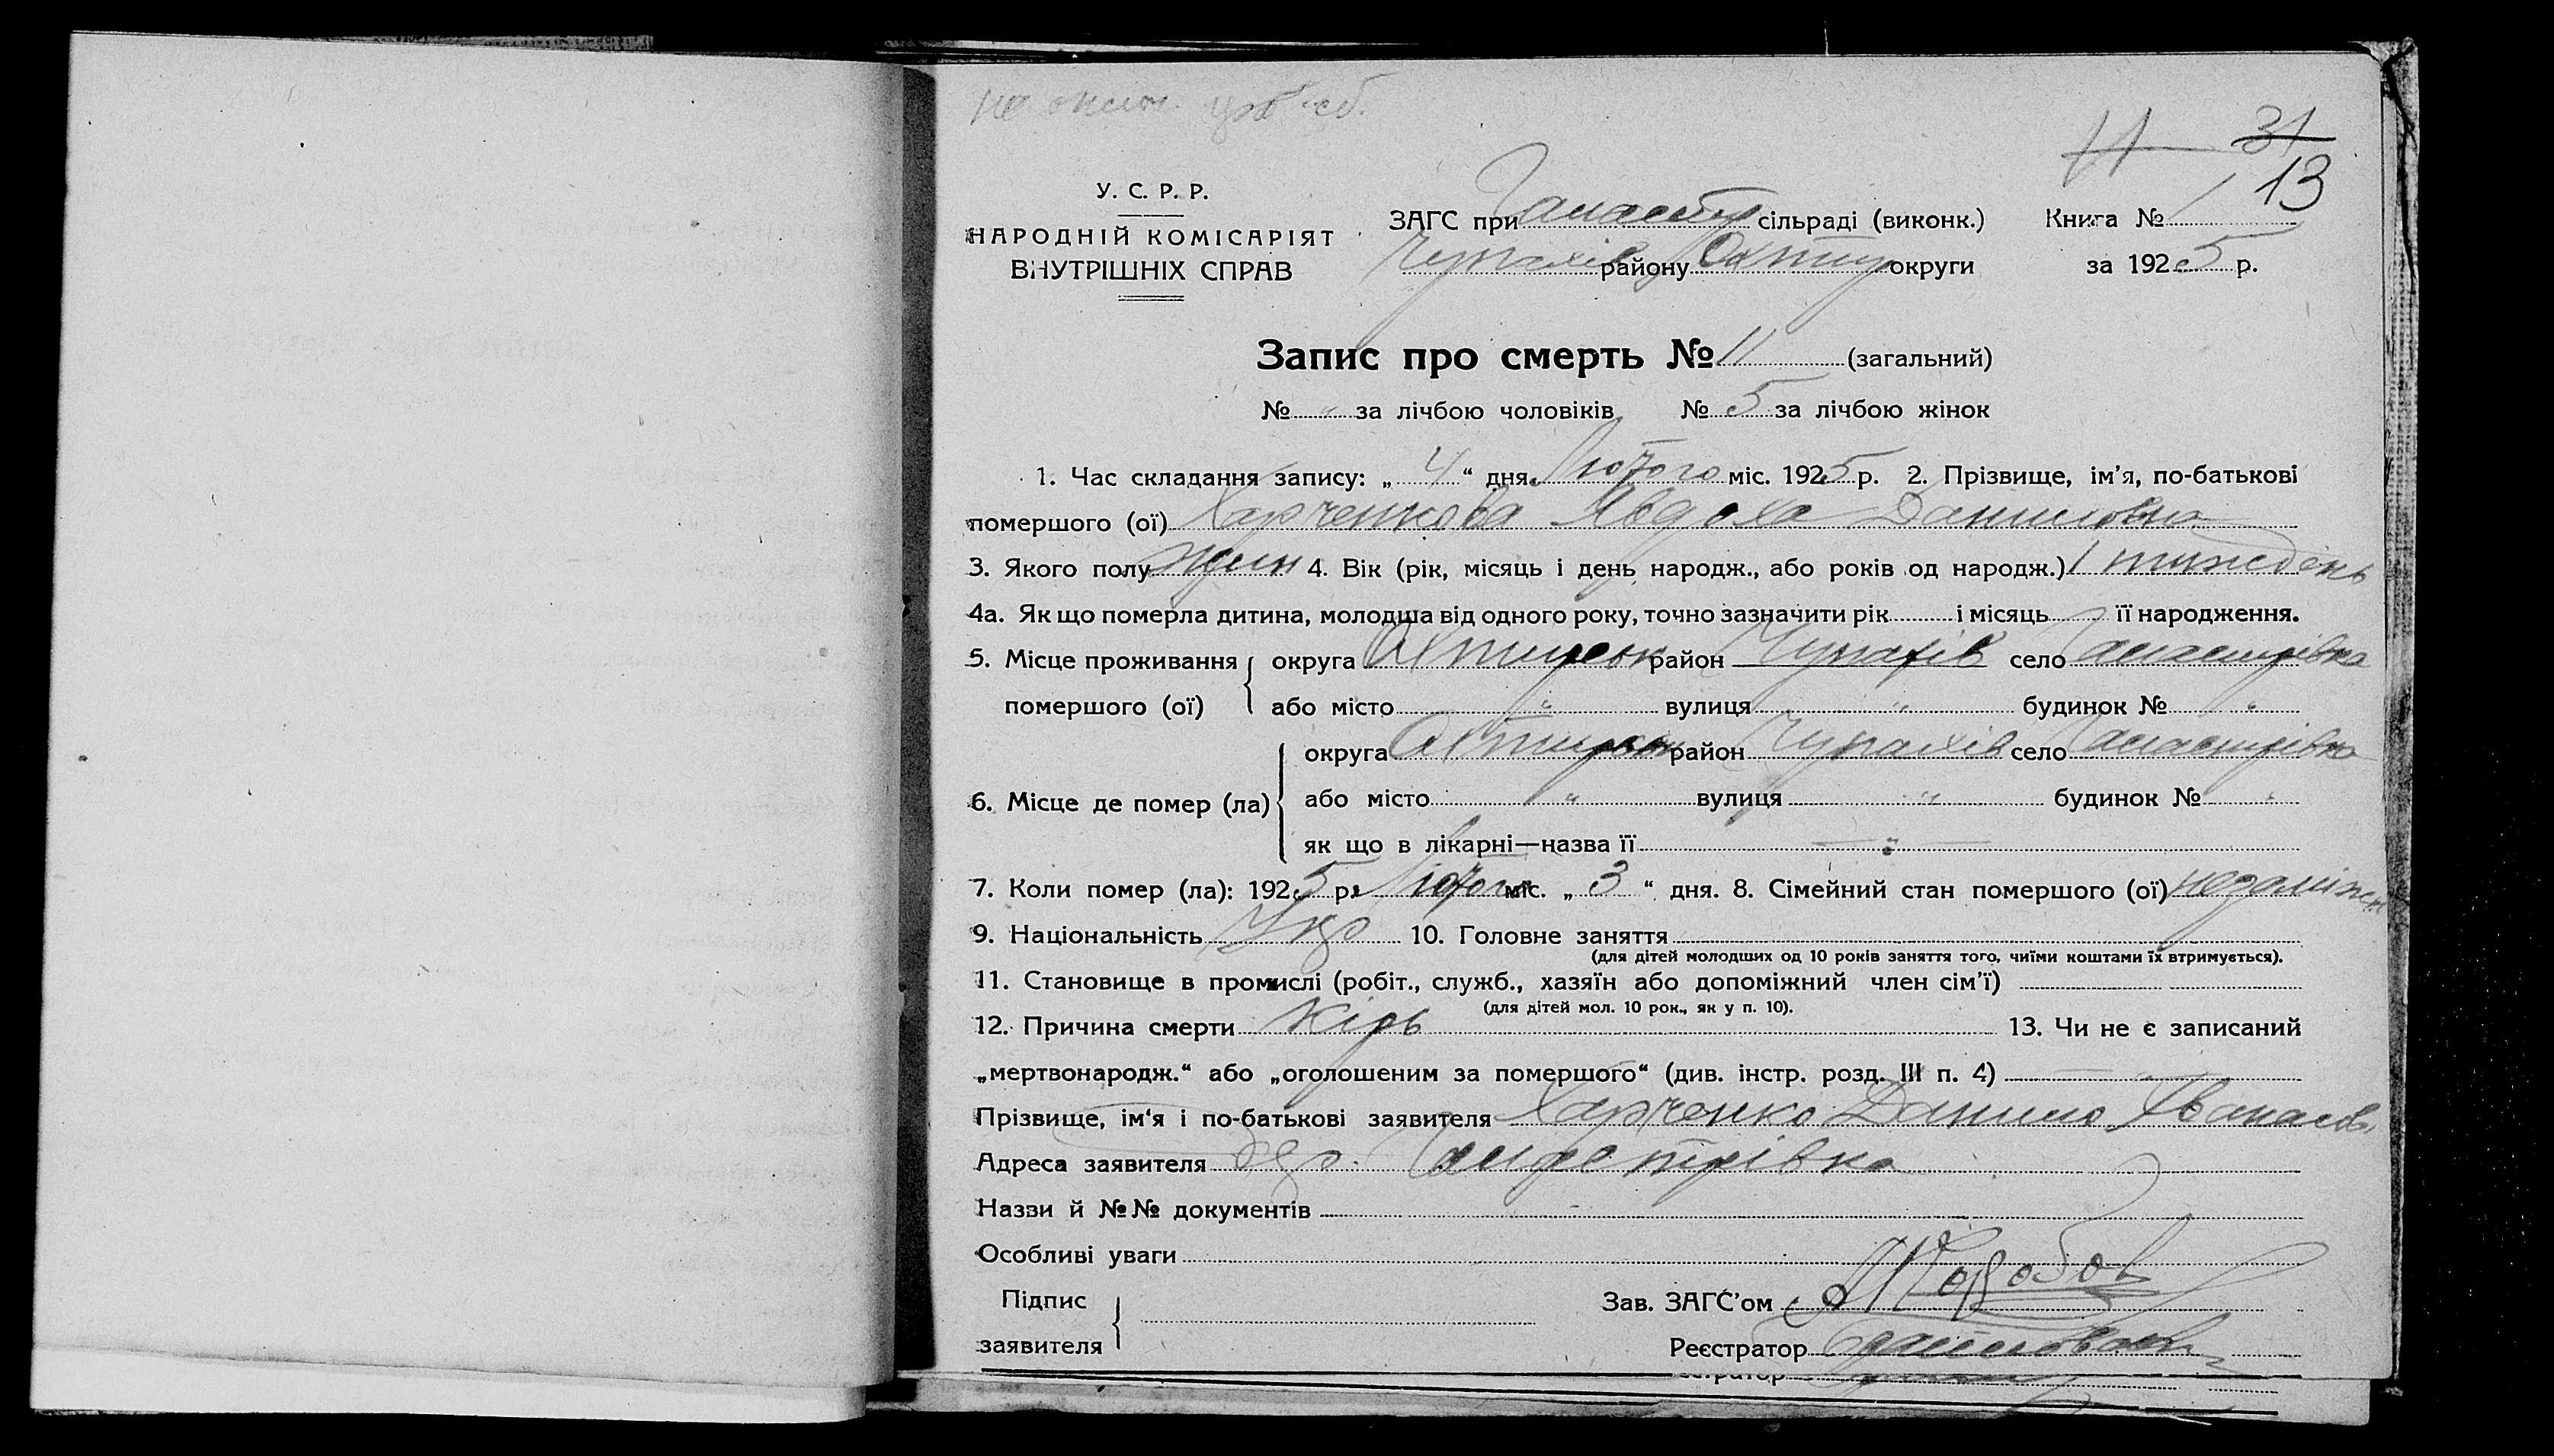 31
11
13
У. С. Р. Р.
НАРОДНІЙ КОМІСАРІЯТ
ВНУТРІШНІХ СПРАВ
ЗАГС при сільраді (виконк.)
Чупахів району Охтир округи
Книга № 1
за 1925 р.
Запис про смерть № 11 (загальний)
№ " за лічбою чоловіків № 5 за лічбою жінок
1. Час складання запису: „ 4 “ дня Лютого міс. 1925 р. 2. Прізвище, ім'я, по-батькові
помершого (ої) Харченкова Явдоха Даниловна
3. Якого полу жін 4. Вік (рік, місяць і день народж., або років од народж.) 1 тиждень
4а. Як що померла дитина, молодша від одного року, точно зазначити рік і місяць її народження.
5. Місце проживання помершого (ої) округа Охтирськ район Чупахів село
або місто " вулиця " будинок № "
6. Місце де помер (ла) округа Охтирськ район Чупахів село
або місто " вулиця " будинок № "
як що в лікарні—назва її — " —
7. Коли помер (ла): 1925 р. Лютого міс. „ 3 “ дня. 8. Сімейний стан помершого (ої) незаміжн
9. Національність Укр 10. Головне заняття
(для дітей молодших од 10 років заняття того, чиїми коштами їх втримується).
11. Становище в промислі (робіт., служб., хазяїн або допоміжний член сім'ї)
(для дітей мол. 10 рок., як у п. 10).
12. Причина смерти Кірь 13. Чи не є записаний
„мертвонародж.“ або „оголошеним за помершого“ (див. інстр. розд. III п. 4)
Прізвище, ім'я і по-батькові заявителя Харченко Данило
Адреса заявителя
Назви й №№ документів
Особливі уваги
Підпис
заявителя
Зав. ЗАГС'ом
Реєстратор